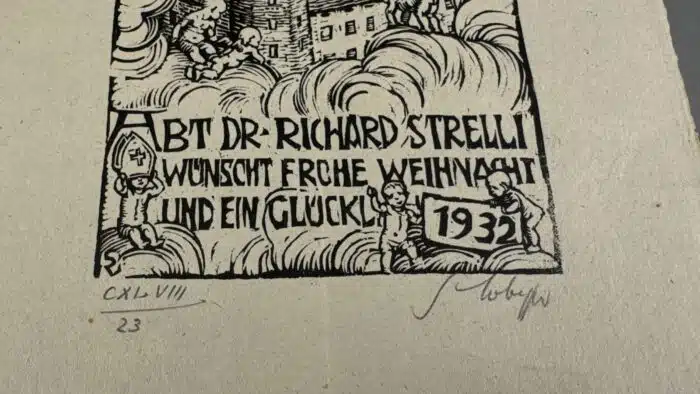 ABT DR. RICHARD STRELLI
WÜNSCHT FROHE WEIHNACHT
UND EIN GLÜCKL
1932
CXLVIII
23